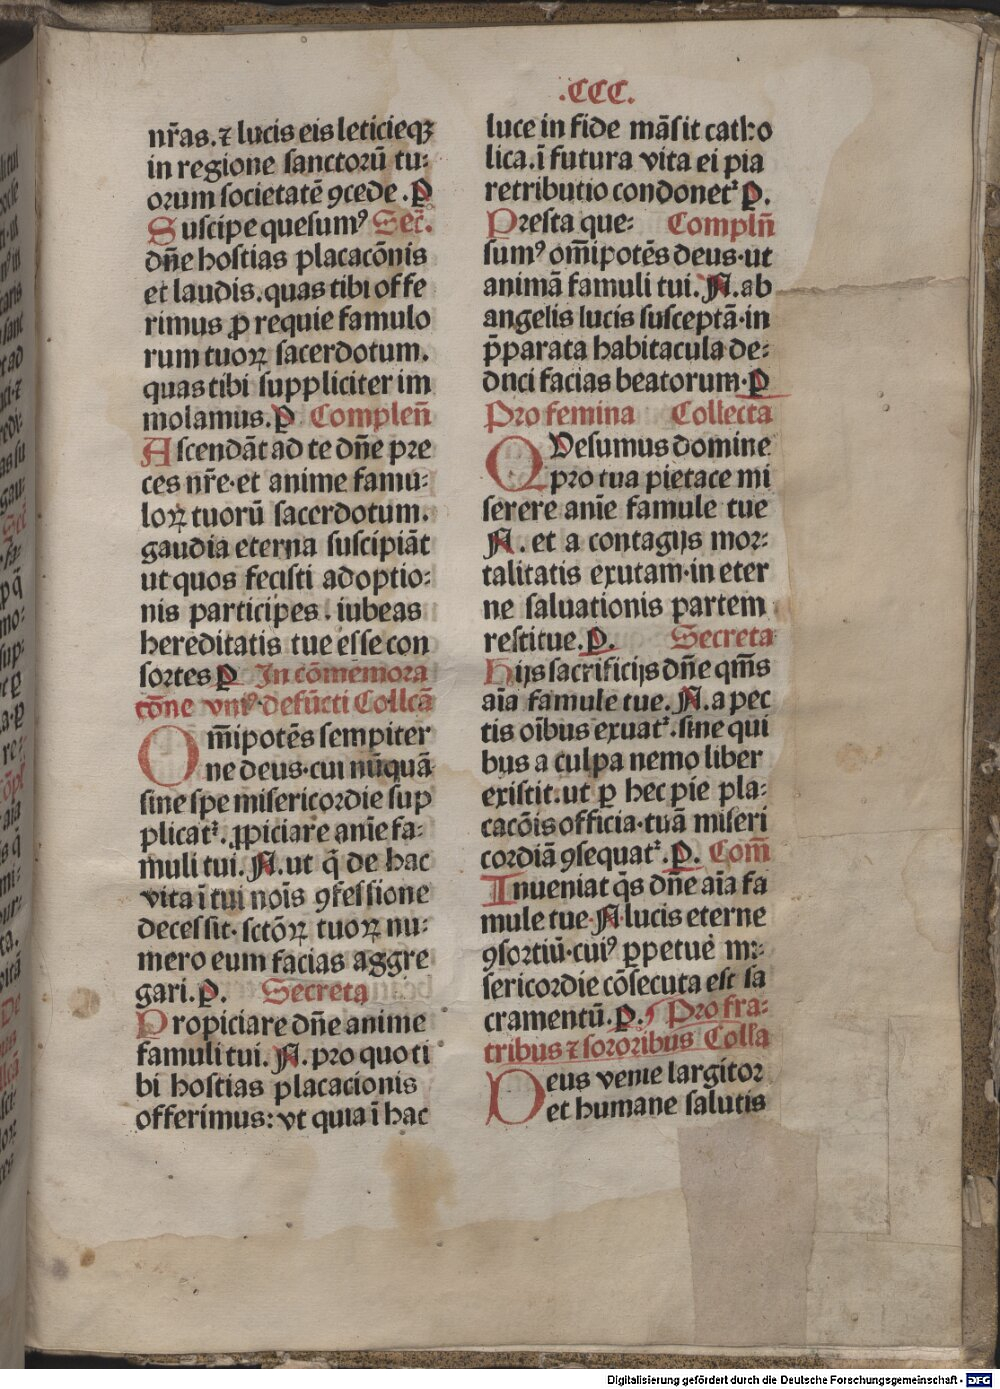 .CCC.
nr̄as.⁊ lucis eis leticieqꝫ
in regione sanctorū tu⸗
orum societatē ꝯcede.P̱
Suscipe quesumꝰ Sec̄.
dn̄e hostias placacōnis
et laudis.quas tibi offe
rimus ꝓ requie famulo
rum tuoꝝ sacerdotum.
quas tibi suppliciter im
molamus.ꝑ Complen̄
Ascendāt ad te dn̄e pre
ces nr̄e·et anime famu⸗
loꝝ tuorū sacerdotum.
gaudia eterna suscipiāt
ut quos fecisti adoptio⸗
nis participes.iubeas
hereditatis tue esse con
sortes ꝑ In cōmemora
cōne vniꝰ defūcti Collcā
Om̄ipotēs sempiter
ne deus·cui nūquā
sine spe misericordie sup
plicatᷣ.ꝓpiciare anīe fa⸗
muli tui.N.ut q̄ de hac
vita ī tui noīs ꝯfessione
decessit·sctōꝝ tuoꝝ nu⸗
mero eum facias aggre
gari.ꝑ. Secreta
Propiciare dn̄e anime
famuli tui.N.pro quo ti
bi hostias placacionis
offerimus: vt quia ī hac
luce in fide māsit catho
lica.ī futura vita ei pia
retributio condonetᷣ ꝑ.
Presta que⸗ Compln̄
sumꝰ om̄ipotēs deus·ut
animā famuli tui.N.ab
angelis lucis susceptā·in
p̄parata habitacula de⸗
dnci facias beatorum·ꝑ
Pro femina Collecta
QVesumus domine
pro tua pietace mi
serere anīe famule tue
N.et a contagijs mor⸗
talitatis exutam·in eter
ne saluationis partem
restitue.ꝑ. Secreta
Hijs sacrificijs dn̄e qm̄s
aīa famule tue.N.a pec
tis oībus exuatᷣ.sine qui
bus a culpa nemo liber
existit.ut ꝑ hec pie pla⸗
cacōis officia·tuā miseri
cordiā ꝯsequatᷣ.ꝑ. Com̄
Inueniat q̄s dn̄e aīa fa
mule tue N lucis eterne
ꝯsortiū·cuiꝰ ꝑpetue mi⸗
sericordie cōsecuta est sa
cramentū.ꝑ. Pro fra⸗
tribus ⁊ sororibus Colla
Deus venie largitor
et humane salutis
Digitalisierung gefördert durch die Deutsche Forschungsgemeinschaft - DFG